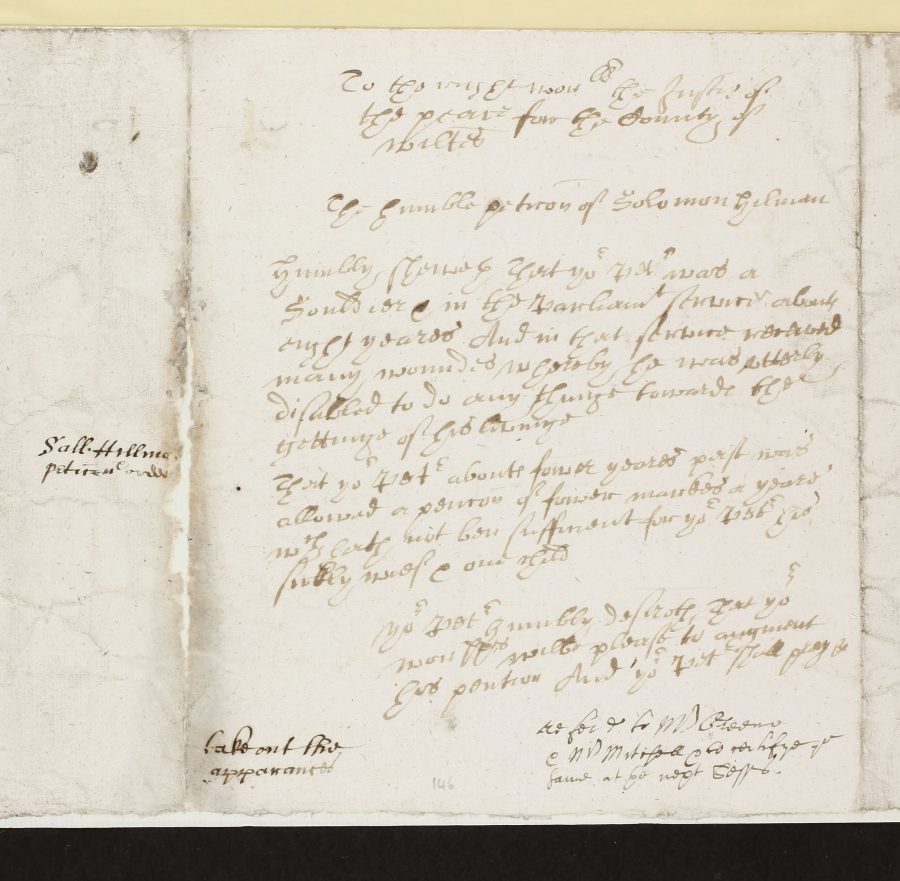 To the right worsh the Justic of
the peace for the County of
wiltes
The humble peticon of Solomon Hilman
Humbly sheweth That yor Petr was a
Souldier in the Parliamt service about
eight yeares And in that service received
many woundes whereby he was utterly
disabled to do any thinge towards the
gettinge of his livinge
That yor Petr about fower yeares past was
allowed a pencon of fower markes a yeare
wch hath not ben sufficient for yor Petr his
sickly wief & one child
yor Petr humbly desireth That yor
worshps wilbe pleased to augment
his pention And yor Petr shall pray &c
Sall: Hillma
peticon
take out the
apparances
refer'd to Mr Greene
& Mr Mitchell to certifye ye
same at ye next Sess.
146